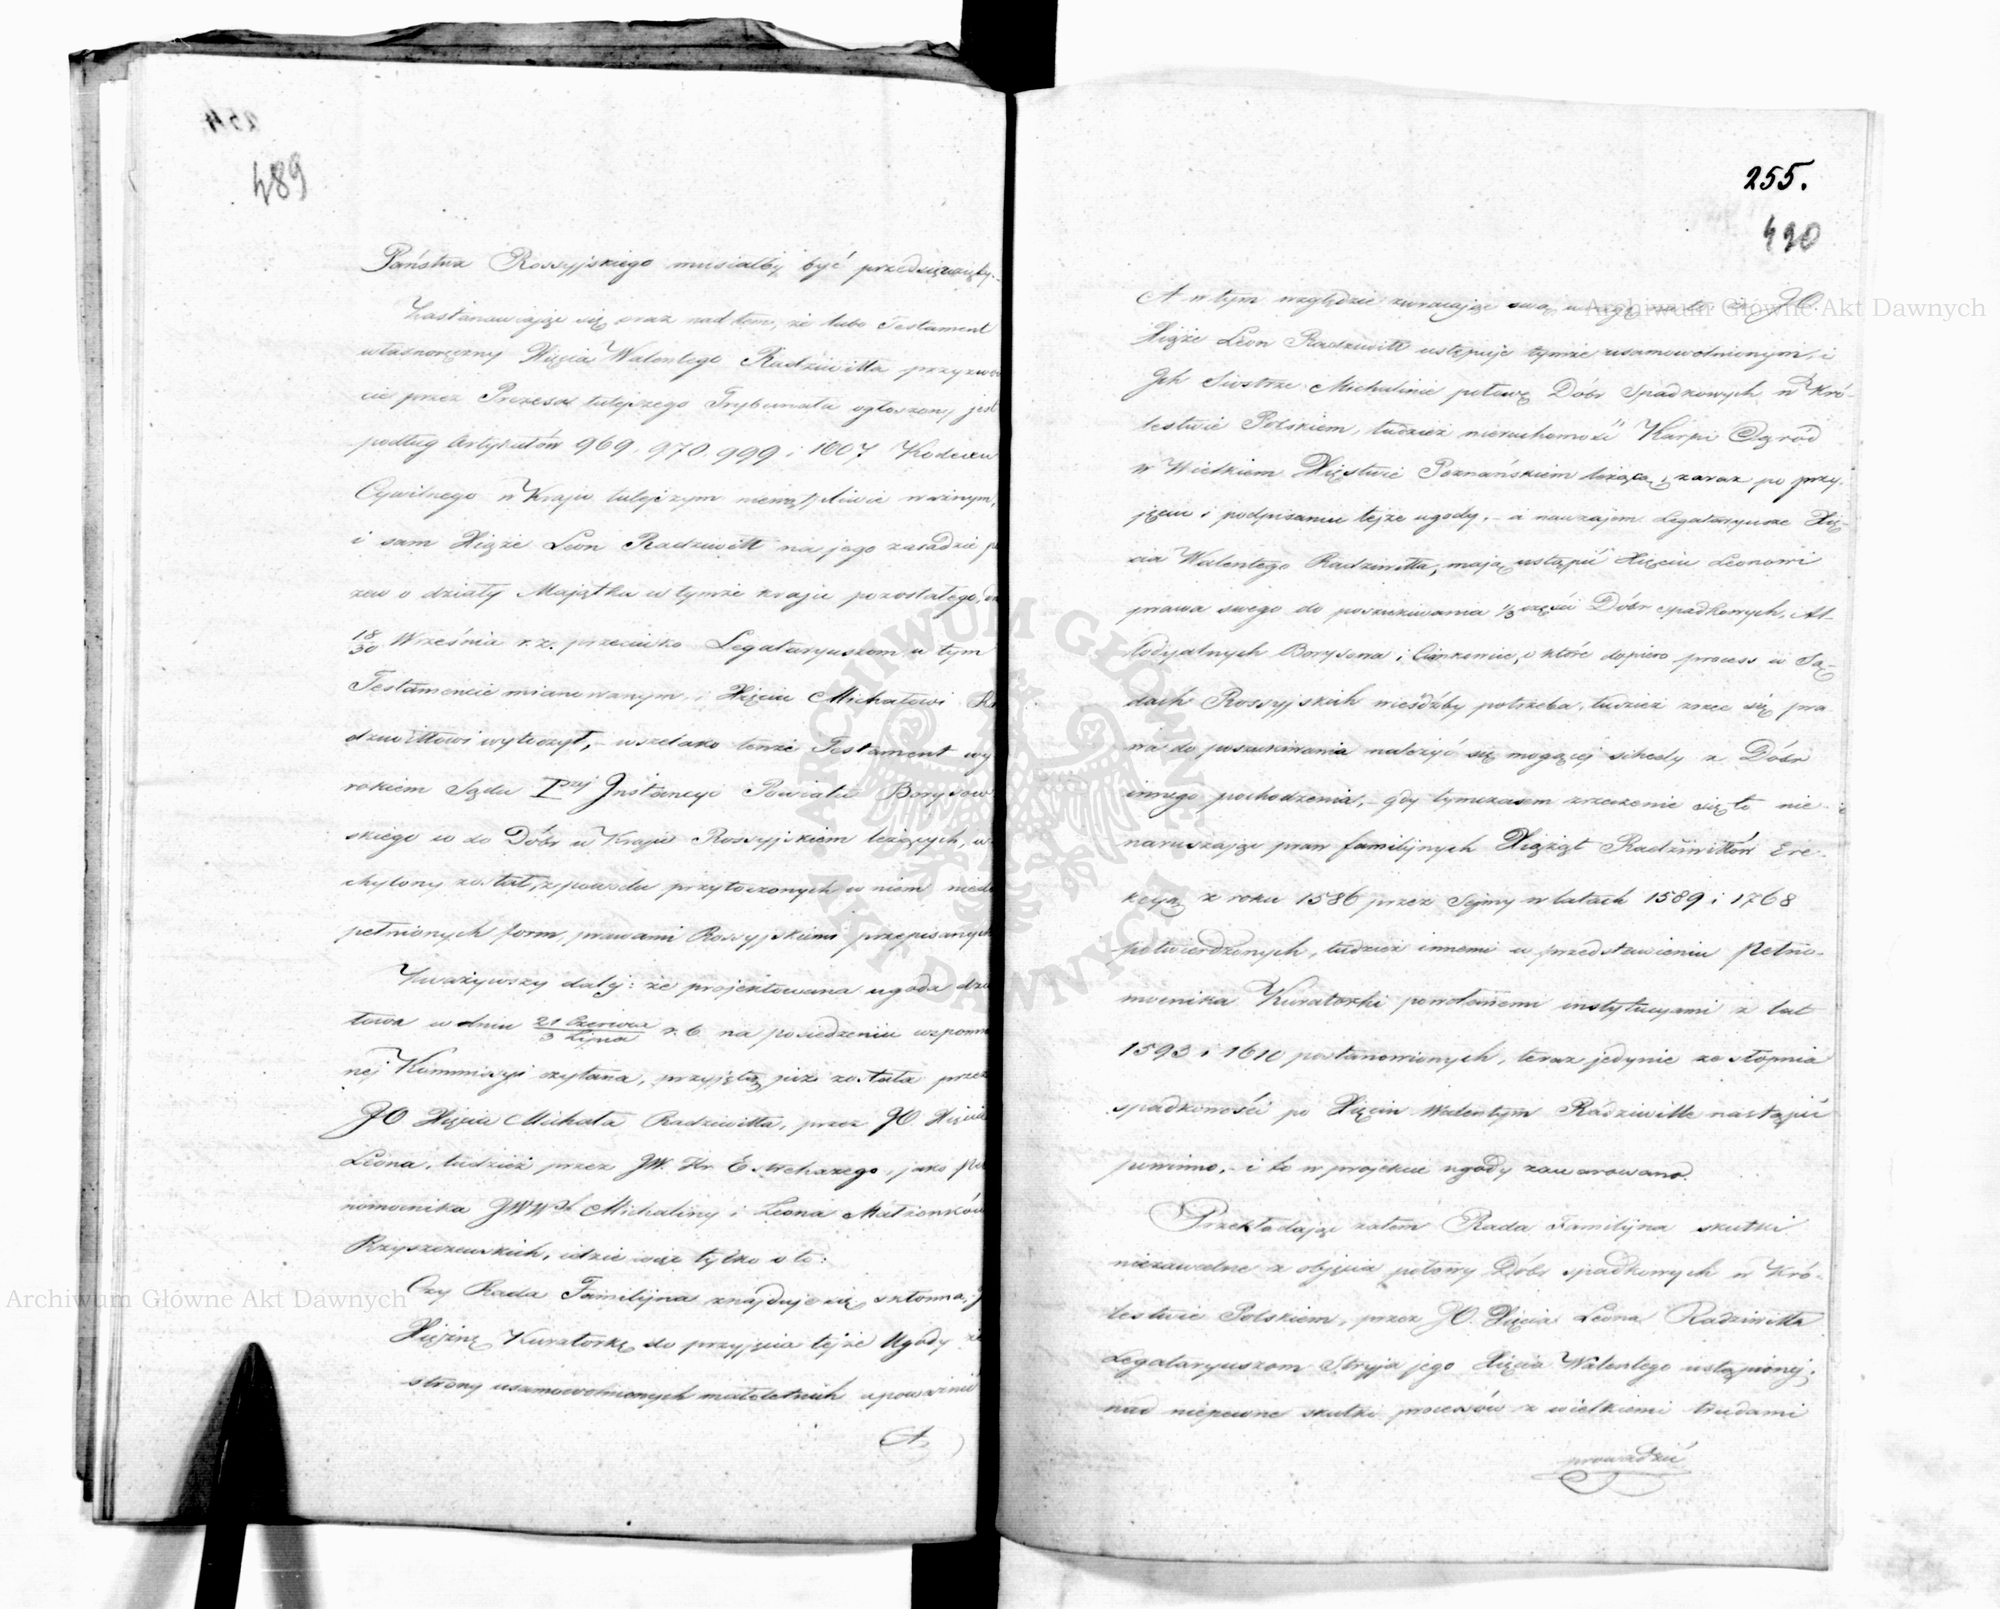 254
489
Państwa Rossyjskiego musiałby być przedsięwzięty.
Zastanawiając się oraz nad tem, że lubo Testament
własnoręczny Xięcia Walentego Radziwiłła przyzwo
cie przez Prezesa tutejszego Trybunału ogłoszony jest
podług Artykułów 969, 970, 999 i 1007 Kodexu
Cywilnego w Kraju tutejszym niewątpliwie ważnym,
i sam Xiąże Leon Radziwiłł na jego zasadzie p
zew o działy Majątku w tymże kraju pozostałego,
18/30 Września r.z. przeciwko Legataryuszom w tym
Testamencie mianowanym, i Xięciu Michałowi R
dziwiłłowi wytoczył, – wszelako tenże Testament wy
rokiem Sądu Iszej Instancyi Powiatu Borysow
skiego co do Dóbr w Kraju Rossyjskiem leżących, u
chylony został, z powodu przytoczonych w niem niedo
pełnionych form prawami Rossyjskiemi przepisanych
Zważywszy dalej: że projektowana ugoda dzia
łowa w dniu 21 Czerwca/3 Lipca r.b. na posiedzeniu wspomn
nej Kommissyi czytana, przyjętą już została przez
JO Xięcia Michała Radziwiłła, przez JO. Xięcia
Leona, tudzież przez JW. Hr. Estrehazego, jako Peł
nomocnika JWWch Michaliny i Leona Małżonków
Rzyszczewskich, idzie więc tylko o to:
Czy Rada Familijna znajduje się skłonną,
Xiężnę Kuratorkę do przyjęcia tejże Ugody ze
strony usamowolnionych małoletnich upoważnić
A
255.
490
A w tym względzie zwracając swą uwagę na to: że JO.
Xiąże Léon Radziwiłł ustępuje tymże usamowolnionym, i
Ich Siostrze Michalinie połowę Dóbr Spadkowych w Kró-
lestwie Polskiem, tudzież nieruchomość Karpi Ogród
w Wielkiem Xięstwie Poznańskiem leżącą, zaraz po przy-
jęciu i podpisaniu tejże ugody, – a nawzajem Legataryusze Xię-
cia Walentego Radziwiłła, mają ustąpić Xięciu Leonowi
prawa swego do poszukiwania 1/3 części Dóbr spadkowych, Al-
lodyalnych Borysowa i, o które dopiero process w Są-
dach Rossyjskich wieśdźby potrzeba, tudzież zrzec się pra-
wa do poszukiwania należyć się mogącej schedy z Dóbr
innego pochodzenia, – gdy tymczasem zrzeczenie się to nie
naruszając praw familijnych Xiążąt Radziwiłłów Ere-
kcyą z roku 1586 przez Sejmy w latach 1589 i 1768
potwierdzonych, tudzież innemi w przedstawieniu Pełno-
mocnika Kuratorki powołanemi instytucyami z lat
1593 i 1610 postanowionych, teraz jedynie ze stopnia
spadkowości po Xięciu Walentym Radziwille nastąpić
powinno, – i to w projekcie ugody zawarowano.
Przekładając zatem Rada Familijna skutki
niezawodne z objęcia połowy Dóbr spadkowych w Kró-
lestwie Polskiem, przez JO. Xięcia Leona Radziwiłła
Legataryuszom Stryja jego Xięcia Walentego ustąpionej,
nad niepewne skutki processów z wielkiemi trudami
prowadzić
Archiwum Główne Akt Dawnych
Archiwum Główne Akt Dawnych
ARCHIWUM GŁÓWNE AKT DAWNYCH